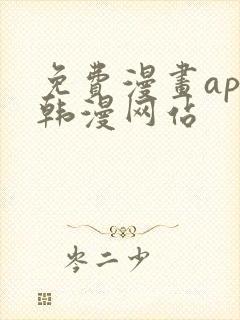 免費漫畫ap
韩漫网站
岑二少